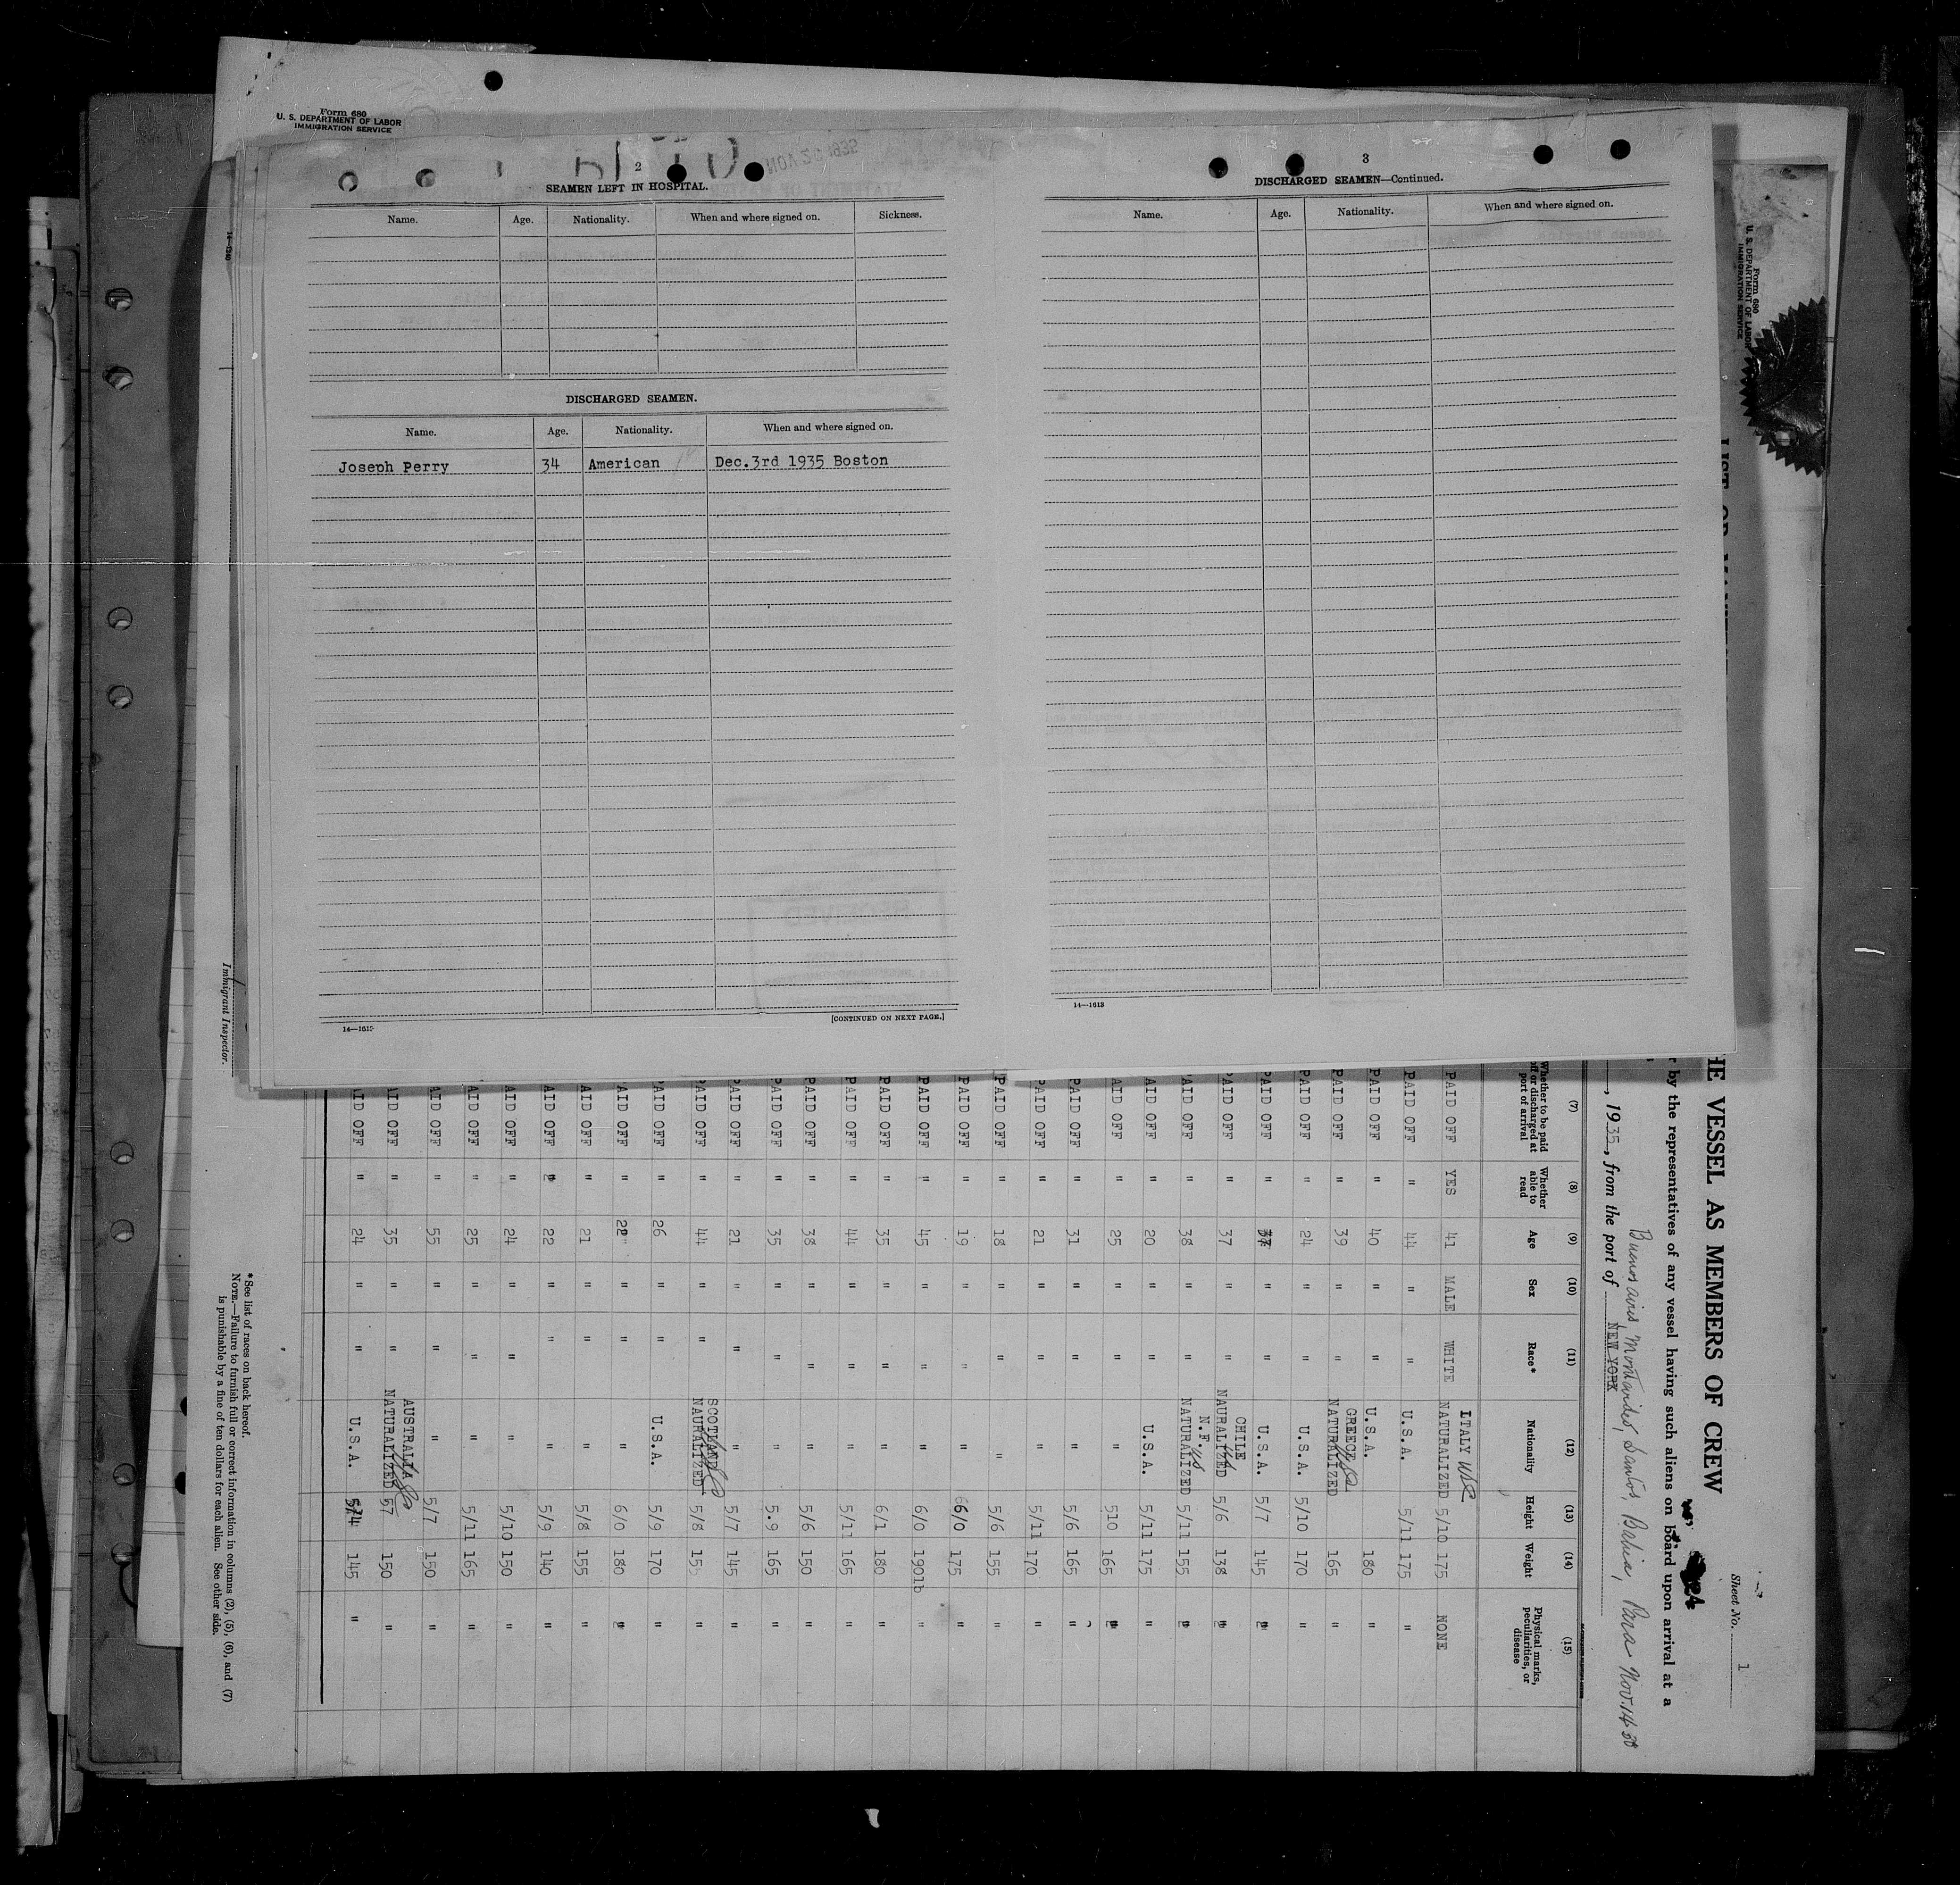 Form 680
U. S. DEPARTMENT OF LABOR
IMMIGRATION SERVICE
NOV 26 1935
2
SEAMEN LEFT IN HOSPITAL.
Name. Age. Nationality. When and where signed on. Sickness.
DISCHARGED SEAMEN.
Name. Age. Nationality. When and where signed on.
Joseph Perry 34 American Dec.3rd 1935 Boston
14—1615
[CONTINUED ON NEXT PAGE.]
3
DISCHARGED SEAMEN—Continued.
Name. Age. Nationality. When and where signed on.
14—1613
Immigrant Inspector.
Form 680
U. S. DEPARTMENT OF LABOR
IMMIGRATION SERVICE
Sheet No. 1
HE VESSEL AS MEMBERS OF CREW
r by the representatives of any vessel having such aliens on board upon arrival at a
Buenos aires, Montevideo, Santos, Bahia, Para Nov. 14
, 1935, from the port of NEW YORK
(7) (8) (9) (10) (11) (12) (13) (14) (15)
Whether to be paid off or discharged at port of arrival Whether able to read Age Sex Race* Nationality Height Weight Physical marks, peculiarities, or disease
ITALY
PAID OFF YES 41 MALE WHITE NATURALIZED 5/10 175 NONE
PAID OFF " 44 " " U.S.A. 5/11 175 "
PAID OFF " 40 " " U.S.A. 180 "
GREECE
PAID OFF " 39 " " NATURALIZED 165 "
PAID OFF " 24 " " U.S.A. 5/10 170 "
PAID OFF " " " U.S.A. 5/7 145 "
CHILE
PAID OFF " 37 " " NAURALIZED 5/6 138 "
N.F.
PAID OFF " 38 " " NATURALIZED 5/11 155 "
PAID OFF " 20 " " U.S.A. 5/11 175 "
AID OFF " 25 " " " 510 165 "
PAID OFF " 31 " " " 5/6 165 "
PAID OFF " 21 " " " 5/11 170 "
PAID OFF " 18 " " " 5/6 155 "
PAID OFF " 19 " " " 6/0 175 "
PAID OFF " 45 " " " 6/0 190lb "
PAID OFF " 35 " " " 6/1 180 "
PAID OFF " 44 " " " 5/11 165 "
PAID OFF " 38 " " " 5/6 150 "
PAID OFF " 35 " " " 5.9 165 "
PAID OFF " 21 " " " 5/7 145 "
SCOTLAND
PAID OFF " 44 " " NAURALIZED 5/8 "
PAID OFF " 26 " " U.S.A. 5/9 170 "
AID OFF " 22 " " " 6/0 180 "
AID OFF " 21 " " " 5/8 155 "
AID OFF " 22 " " " 5/9 140 "
AID OFF " 24 " " " 5/10 150 "
AID OFF " 25 " " " 5/11 165 "
AID OFF " 55 " " " 5/7 150 "
AUSTRALIA
AID OFF " 35 " " NATURALIZED 57 150 "
AID OFF " 24 " " U.S.A. 145 "
*See list of races on back hereof.
NOTE.—Failure to furnish full or correct information in columns (2), (5), (6), and (7)
is punishable by a fine of ten dollars for each alien. See other side.